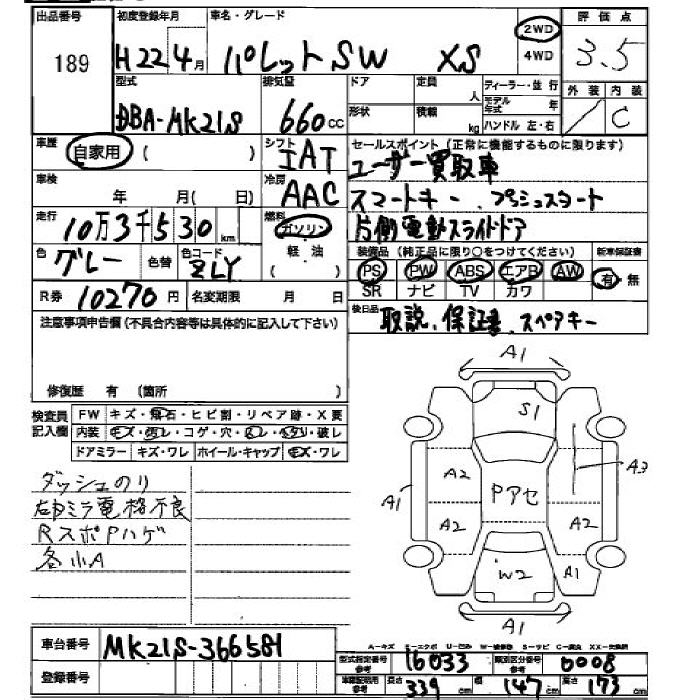 出品番号 初度登録年月 車名・グレード 評価点
189 H22 4月 パレットSW XS 2WD 4WD 3.5
型式 排気量 ドア 定員 人 ディーラー・並行 外装 内装
DBA-MK21S 660cc 形状 積載 kg モデル年式 年 ハンドル 左・右 / C
車歴 自家用 ( ) シフト IAT セールスポイント(正常に機能するものに限ります)
ユーザー買取車
車検 年 月( 日) 冷房 AAC スマートキー、プッシュスタート
走行 10万3千530km 燃料 ガソリン 片側電動スライドドア
色 グレー 色替 色コード ZLY (軽油) 装備品(純正品に限り○をつけてください) 新車保証書
PS PW ABS エアB AW 有 無
SR ナビ TV カワ
R券 10270円 名変期限 月 日 後日品 取説、保証書、スペアキー
注意事項申告欄(不具合内容等は具体的に記入して下さい)
修復歴 有 (箇所 )
検査員記入欄 FW キズ・飛石・ヒビ割・リペア跡・X要
内装 キズ・汚レ・コゲ・穴・スレ・ヘタリ・破レ
ドアミラー キズ・ワレ ホイール・キャップ キズ・ワレ
ダッシュのり
右ミラ電格不良
RスポPハゲ
各小A
A1
S1
A2 A3
A1 Pアセ
A2 A2
W2 A1
A1
A-キズ E-エクボ U-凹み W-補修跡 S-サビ C-腐食 XX-交換済
車台番号 MK21S-366581 型式指定番号 参考 16033 類別区分番号 参考 0008
登録番号 車検証明用 参考 長さ 339cm 幅 147cm 高さ 173cm